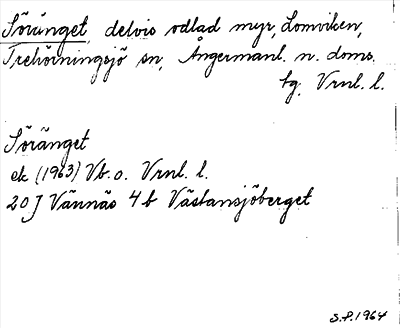 Söränget, delvis odlad myr, Lomviken,
Trehörningsjö sn, Ångermanl. n. doms.
tg, Vrnl. l.
Söränget
ek (1963) Vb. o. Vrnl. l.
20 J Vännäs 4 b Västansjöberget
S.P. 1964